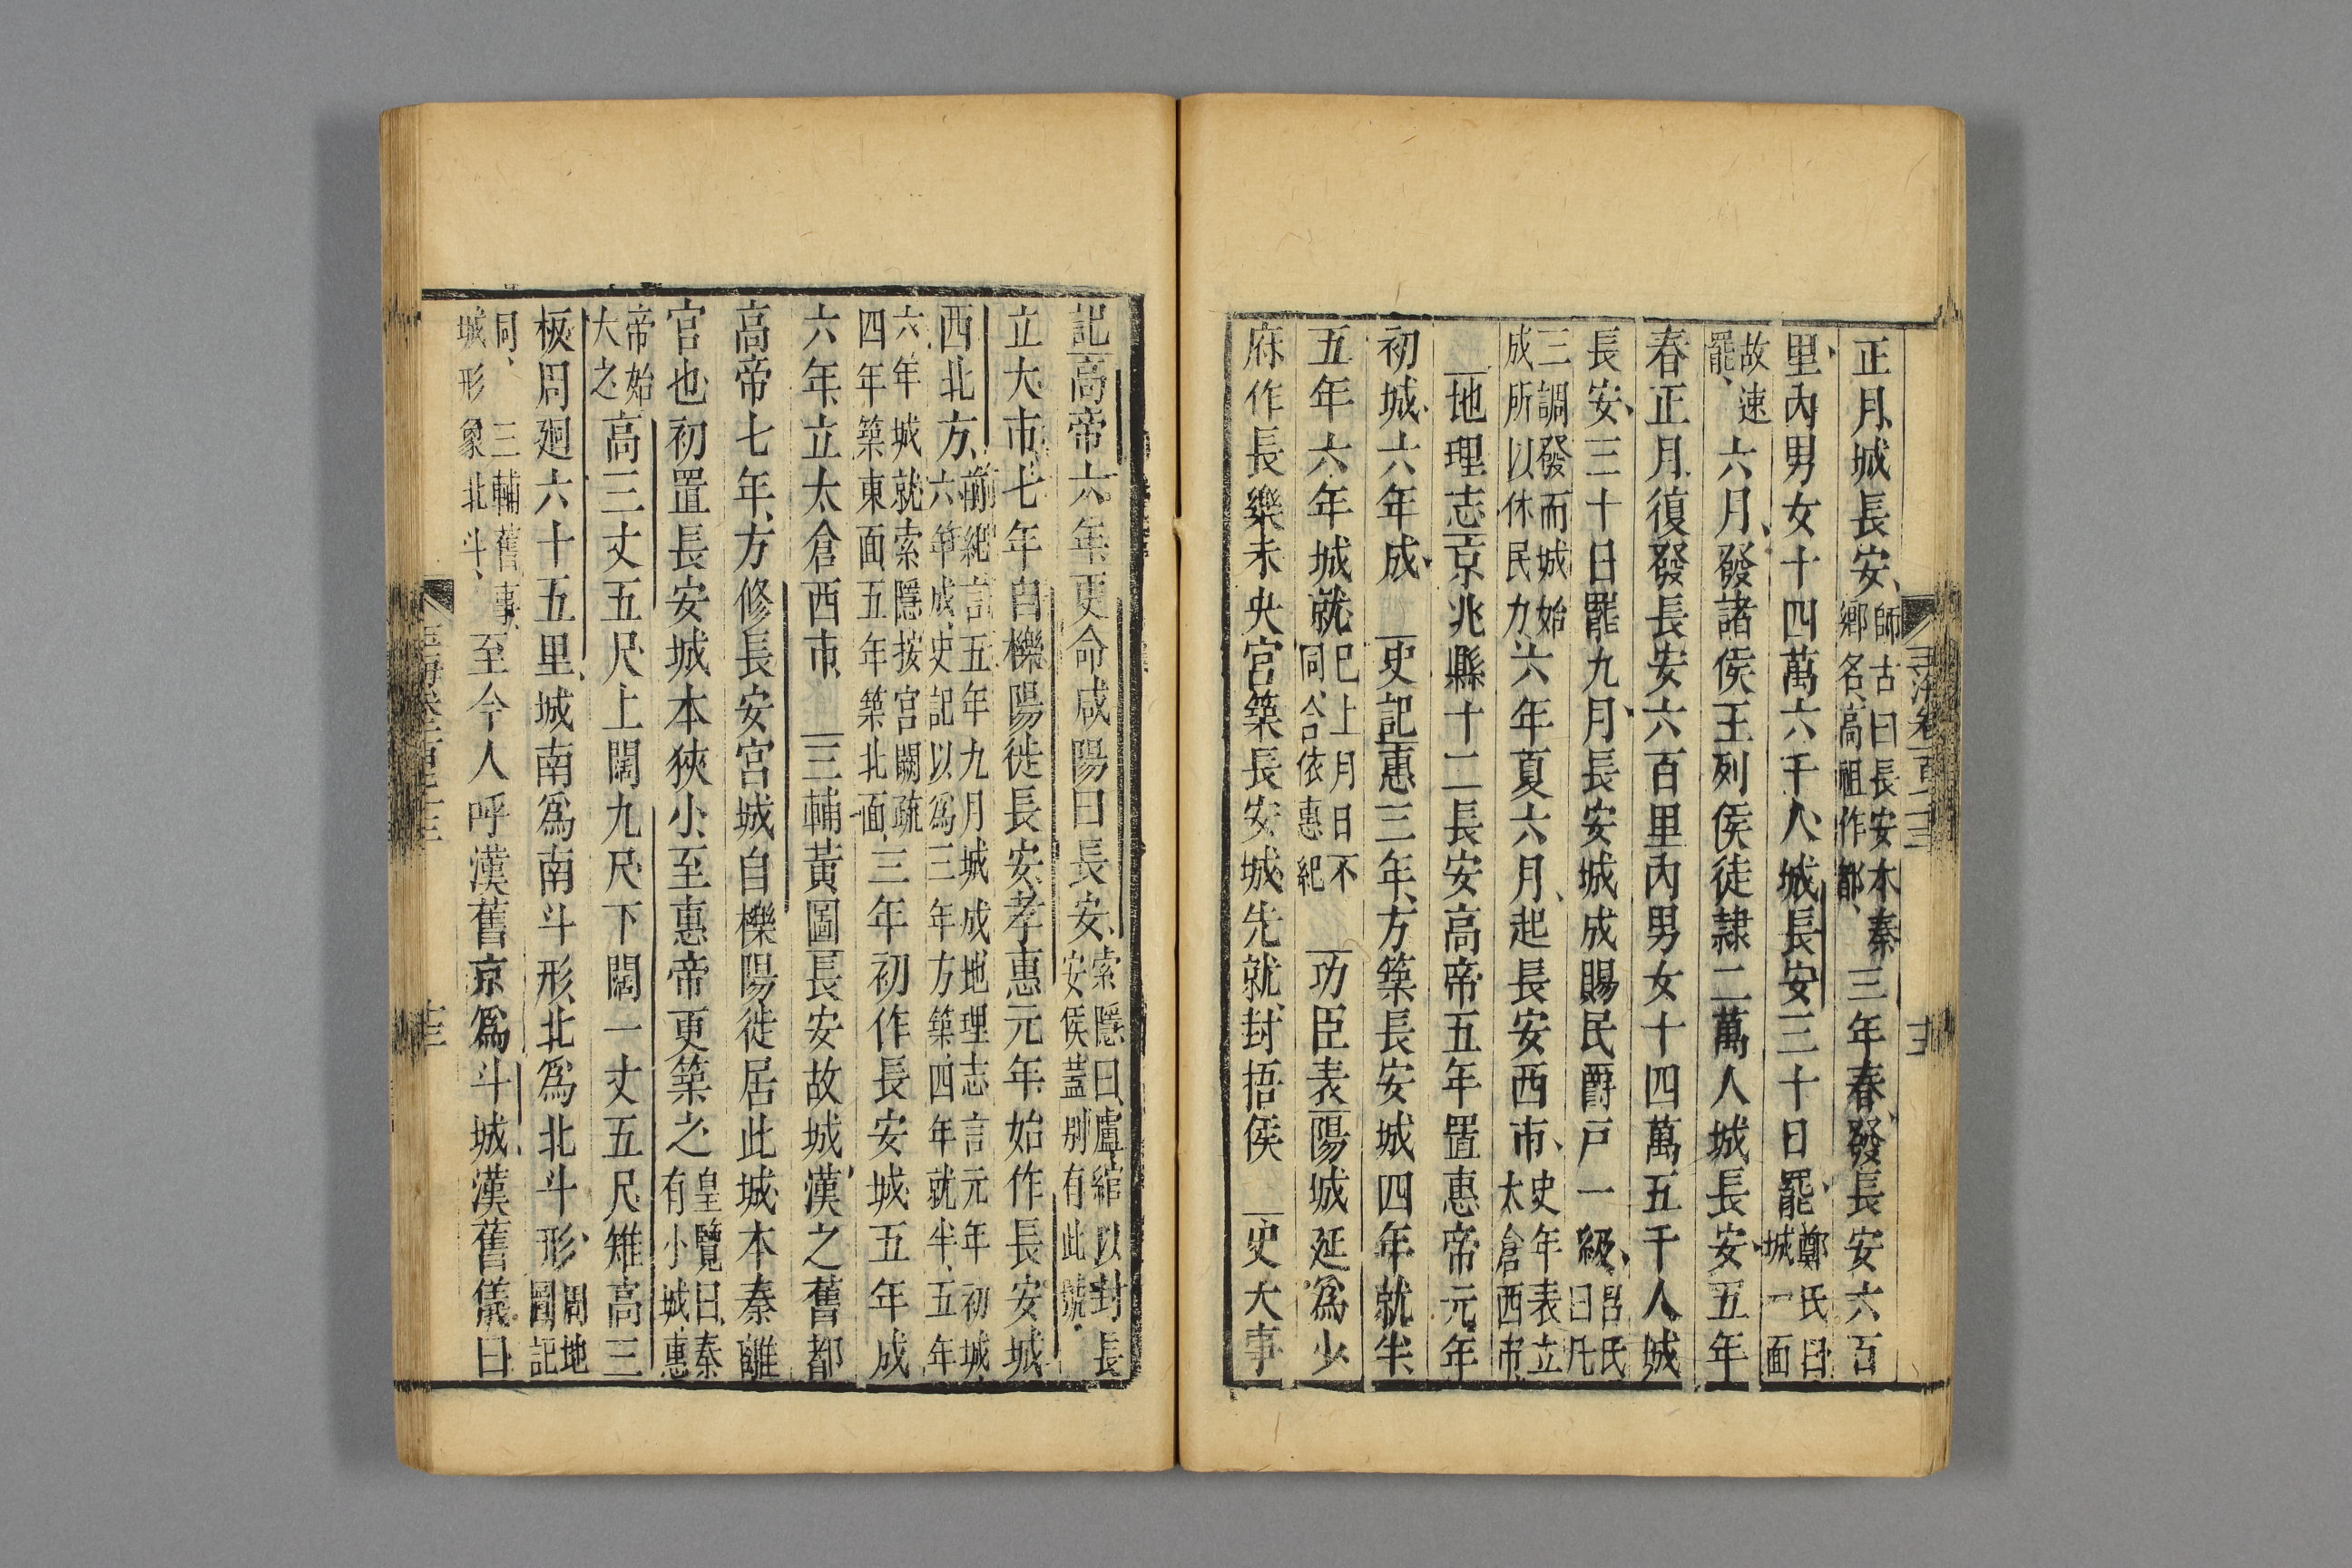 正月城長安師古曰長安本秦鄉名高祖作都三年春發長安六百
里內男女十四萬六千人城長安三十日罷鄭氏曰城一面
故速罷六月發諸侯王列侯徒隸二萬人城長安五年
春正月復發長安六百里內男女十四萬五千人城
長安三十日罷九月長安城成賜民爵戶一級呂氏曰凡
三調發而城始成所以休民力六年夏六月起長安西市史年表立太倉西市
地理志京兆縣十二長安高帝五年置惠帝元年
初城六年成 史記惠三年方築長安城四年就半
五年六年城就已上月日不同合依惠紀 功臣表陽城延為少
府作長樂未央宮築長安城先就封捂侯 史大事
記高帝六年更命咸陽曰長安索隱曰盧綰以封長安侯蓋別有此號
立大市七年自櫟陽徙長安孝惠元年始作長安城
西北方前紀言五年九月城成地理志言元年初城六年成史記以為三年方築四年就半五年
六年城就索隱按宮闕疏四年築東面五年築北面三年初作長安城五年成
六年立太倉西市 三輔黃圖長安故城漢之舊都
高帝七年方修長安宮城自櫟陽徙居此城本秦離
宮也初置長安城本狹小至惠帝更築之皇覽曰秦有小城惠
帝始大之高三丈五尺上闊九尺下闊一丈五尺雉高三
板周廻六十五里城南為南斗形北為北斗形周地圖記
同三輔舊事城形象北斗至今人呼漢舊京為斗城漢舊儀曰